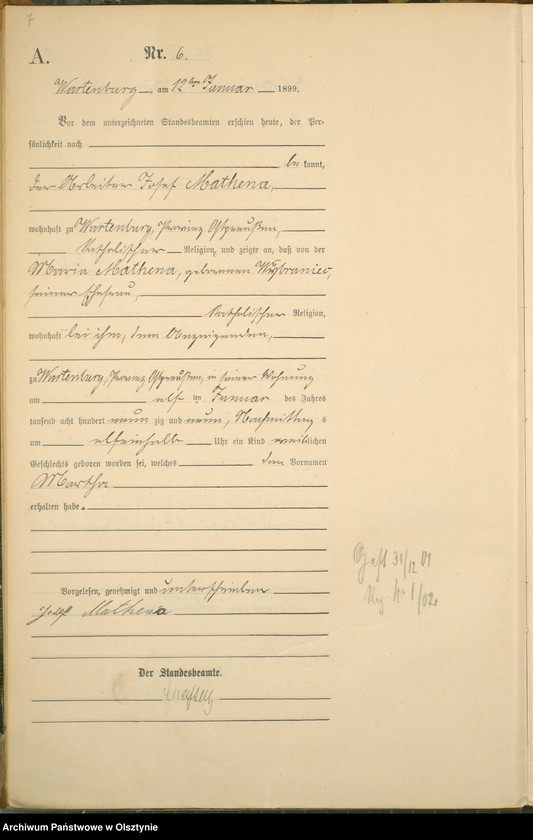 7
A.
Nr. 6.
Wartenburg, am 12ten Januar 1899.
Vor dem unterzeichneten Standesbeamten erschien heute, der Per-
sönlichkeit nach
be kannt,
der Arbeiter Josef Mathena,
wohnhaft zu Wartenburg, Provinz Ostpreußen,
katholischer Religion, und zeigte an, daß von der
Maria Mathena, geborenen
seiner Ehefrau,
katholischer Religion,
wohnhaft bei ihm, dem Anzeigenden,
zu Wartenburg, Provinz Ostpreußen, in seiner Wohnung
am elf ten Januar des Jahres
tausend acht hundert neun zig und neun, Nachmittag s
um elfeinhalb Uhr ein Kind weiblichen
Geschlechts geboren worden sei, welches den Vornamen
Martha
erhalten habe.
Vorgelesen, genehmigt und unterschrieben
Josef Mathena
Der Standesbeamte.
Gest 31/12 01
Reg Nr 1/02.
Archiwum Państwowe w Olsztynie